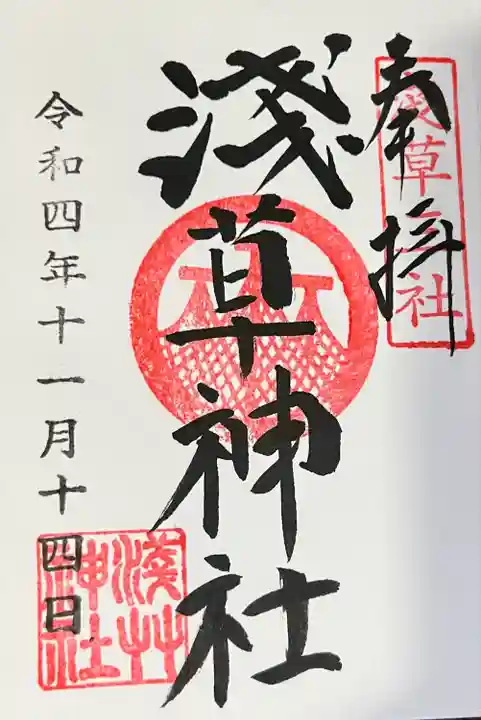 奉拝
淺草社
淺草神社
令和四年十一月十四日
淺草
神社